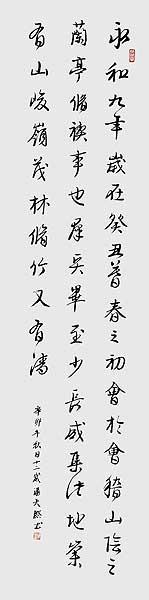 永和九年歲在癸丑暮春之初會於會稽山陰之
蘭亭脩禊事也羣賢畢至少長咸集此地崇
有山峻嶺茂林脩竹又有清
辛卯年秋日十二歲